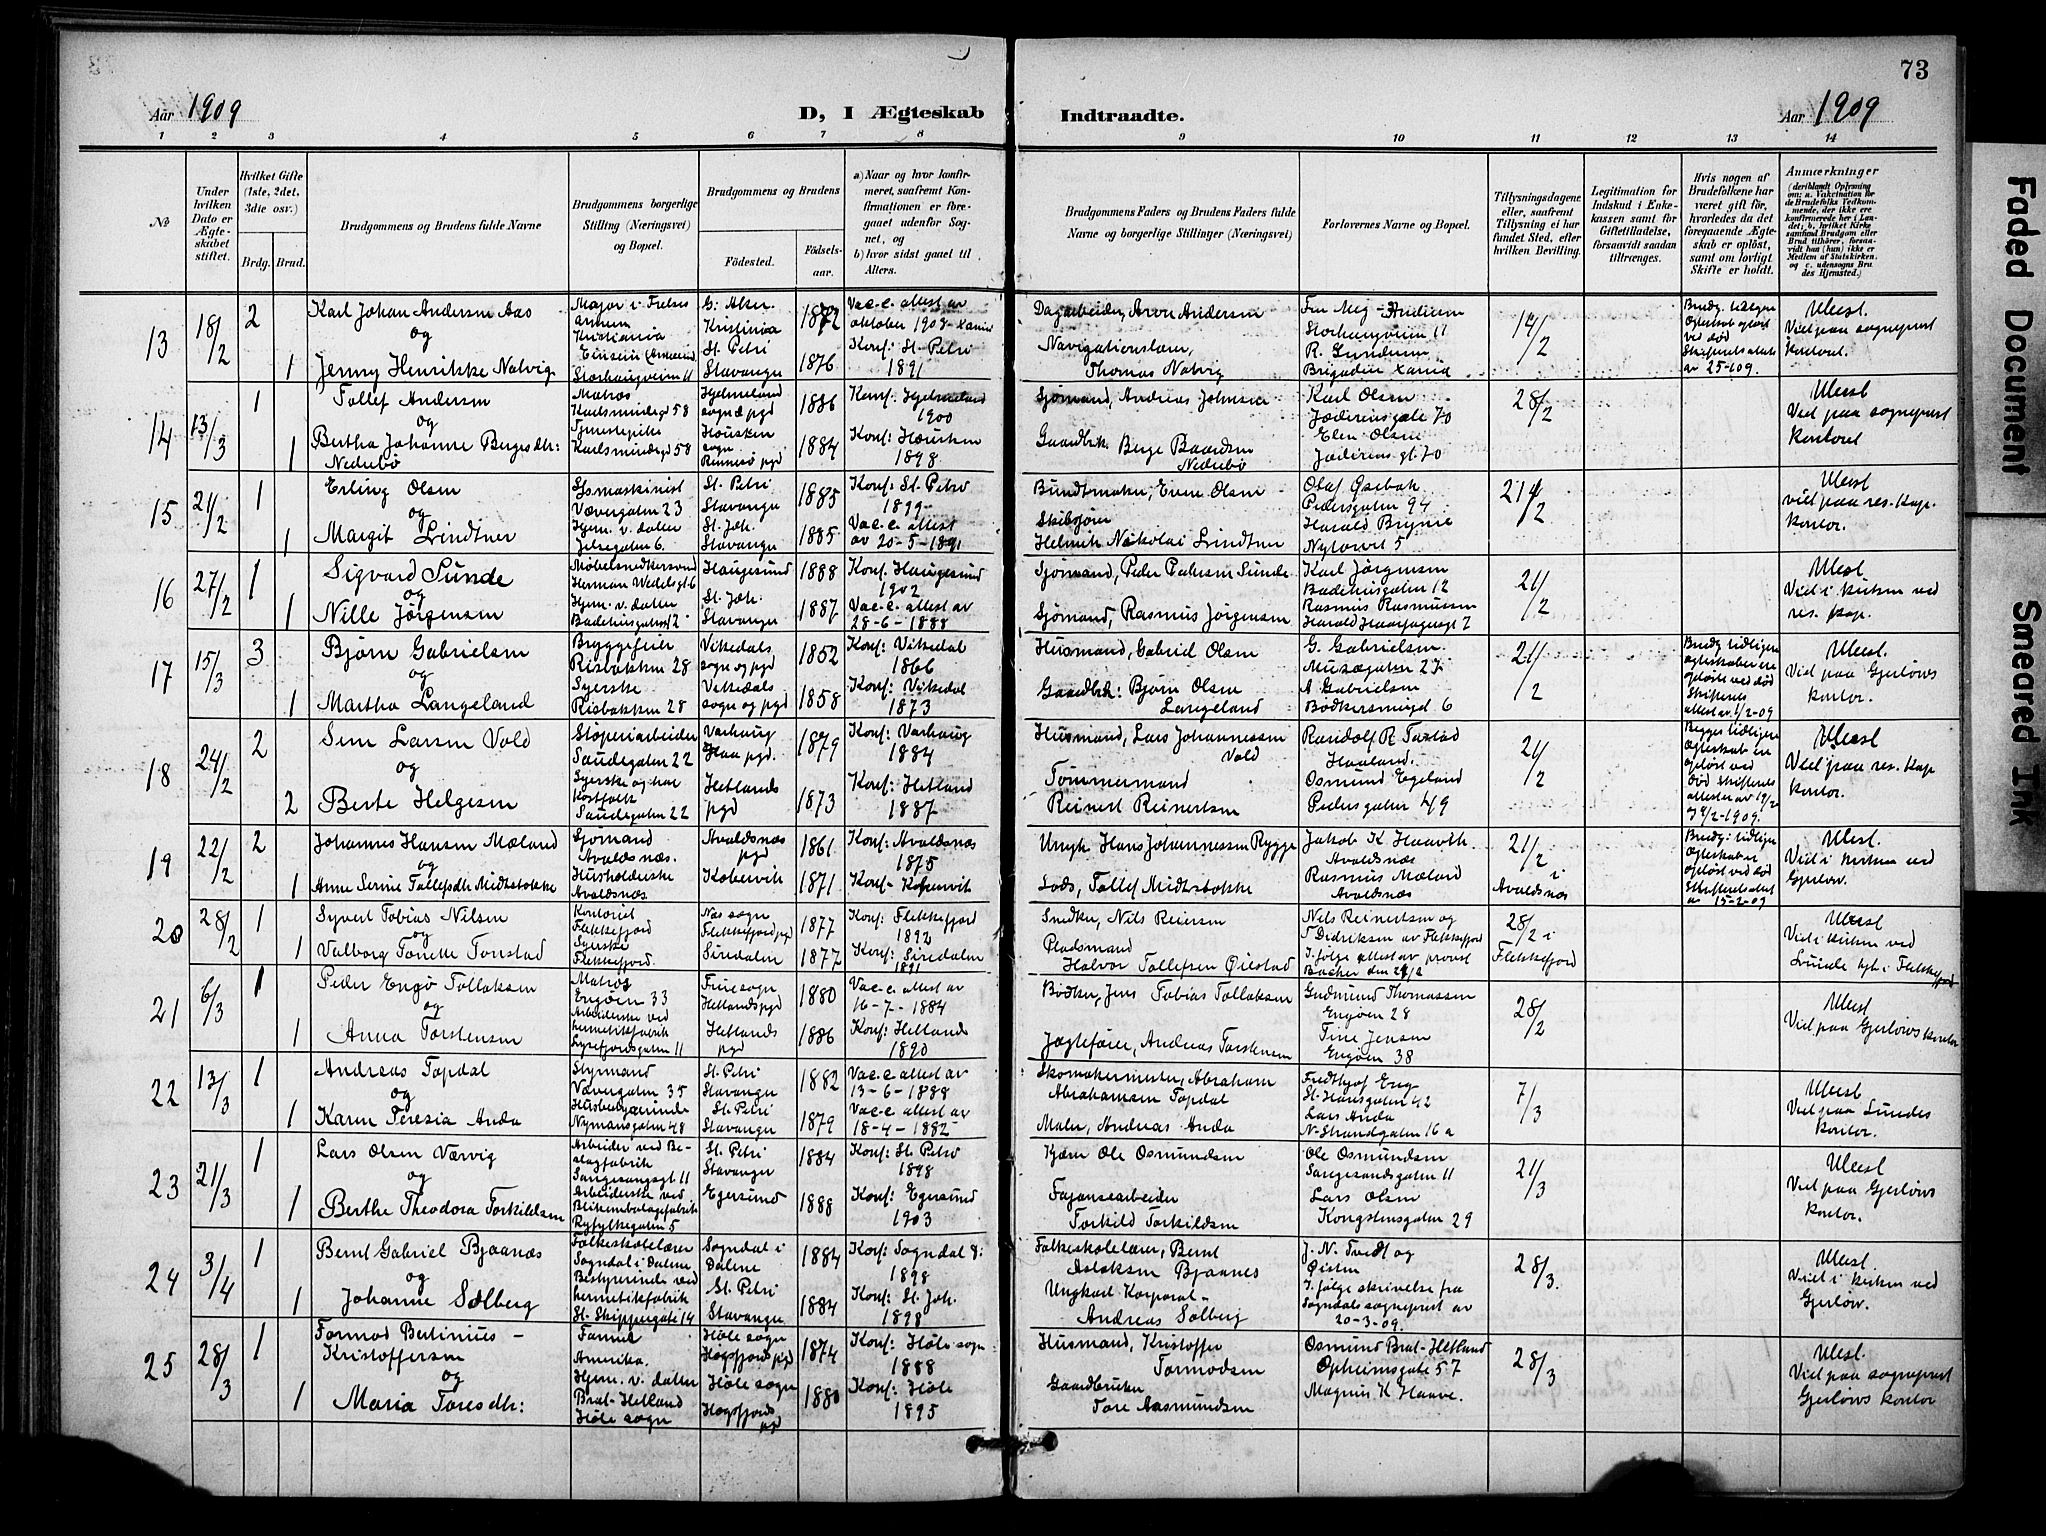 73
Aar 1909
D, I Ægteskab Indtraadte.
Aar 1909
1 2 3 4 5 6 7 8 9 10 11 12 13 14
No
Under hvilken Dato er Ægteskabet stiftet.
Hvilket Gifte (1ste, 2det, 3die osv.)
Brdg. Brud.
Brudgommens og Brudens fulde Navne
Brudgommens borgerlige Stilling (Næringsvei) og Bopæl.
Brudgommens og Brudens
Födested.
Födselsaar.
a) Naar og hvor konfirmeret, saafremt Konfirmationen er foregaaet udenfor Sognet, og
b) hvor sidst gaaet til Alters.
Brudgommens Faders og Brudens Faders fulde Navne og borgerlige Stillinger (Næringsvei)
Forlovernes Navne og Bopæl.
Tillysningsdagene eller, saafremt Tillysning ei har fundet Sted, efter hvilken Bevilling.
Legitimation for Indskud i Enkekassen samt for Giftetilladelse, forsaavidt saadan tiltrænges.
Hvis nogen af Brudefolkene har været gift før, hvorledes da det foregaaende Ægteskab er oplöst, samt om lovligt Skifte er holdt.
Anmærkninger
(deriblandt Oplysning om: a. Vakcination for Brudefolks Vedkommende, der ikke ere konfirmerede her i Landet; b. hvilket Kirkesamfund Brudgom eller Brud tilhörer, forsaavidt han (hun) ikke er Medlem af Statskirken, og c. udensogns Brudes Hjemsted.)
13 18/2 2 Karl Johan Andersen Aas
og
1 Jenny Henrikke Natvig
Storhaugveien 11
Kristiania
St. Petri
Stavanger
1872
1876
Vac.c. attest av
oktober 1903
Konf: St. Petri
1891
Andersen
Navigationslærer,
Thomas Natvig
Storhaugveien 11
14/2
ved død
av 25-1-09.
Ulæst.
Viet paa sogneprest
kontoret.
14 13/3 1 Tollef Andersen
og
1 Bertha Johanne Bergesdtr:
Nedrebø
Matros
Karlsminde gd 58
Tjenestepike
Karlsminde gd 58
Hjelmeland
sogn & pgd
Hausken
sogn
Rennesø pgd
1886
1884
Konf: Hjelmeland
1900
Konf: Hausken
1898
Sjømand, Andreas Johnsen
Gaardbr. Berge Baardsen
Nedrebø
Karl Olsen
Jæderensgate 70
Elen Olsen
Jæderens gt. 70
28/2
Ulæst
Viet paa sogneprest
kontoret
15 21/2 1 Erling Olsen
og
1 Margit Lindtner
Vævergaten 23
Hjem. v. datter
Jelsegaten 6.
St. Petri
Stavanger
St. Joh.
Stavanger
1885
1885
Konf: St. Petri
1899
Vac.c. attest
av 20-5-1891
Bundtmaker, Even Olsen
Skibsfører
Helmik Nikolai Lindtner
Olaf Østbak
Pedersgaten 94
Harald Bryne
Nytorvet 5
Ulæst
viet paa res. kap.
kontor.
16 27/2 1 Sigvard Sunde
og
1 Nille Jørgensen
Møbelsnedkersvend
Herman Wedels gt. 6
Hjem. v. datter
Badehusgaten 12
Haugesund
St. Joh.
Stavanger
1888
1887
Konf. Haugesund
1902
Vac.c. attest av
28-6-1888
Sjømand, Peder Pedersen Sunde
Sjømand, Rasmus Jørgensen
Karl Jørgensen
Badehusgaten 12
Rasmus Rasmussen
Harald Haarfagersgt 7
21/2
Ulæst
Viet i kirken ved
res. kap.
17 15/3 3 Bjørn Gabrielsen
og
1 Martha Langeland
Bryggeformand
Risbakken 28
Syerske
Risbakken 28
Vikedals
sogn og pgd
Vikedals
sogn og pgd
1852
1858
Konf: Vikedal
1866
Konf: Vikedal
1873
Husmand, Gabriel Olsen
Gaardbr: Bjørn Olsen
Langeland
G. Gabrielsen
Musægaten 27
A Gabrielsen
Bødkersmuget 6
21/2
Brudg tidligere
egteskaber ere
opløst ved død
Skifterets
attest av. 1/2-09
Ulæst.
Viet paa Gjerløws
kontor.
18 24/2 2 Sem Larsen Vold
og
2 Berte Helgesen
Støperiarbeider
Saudegaten 22
Syerske og har
kostfolk
Saudegaten 22
Varhaug
Haa pgd.
Hetlands
pgd
1879
1873
Konf: Varhaug
1884
Konf: Hetland
1887
Husmand, Lars Johannessen
Vold
Tømmermand
Reinert Reinertsen
Randolf R Tastad
Haaland.
Osmund Egeland
Pedersgaten 49
21/2
Begges tidligere
Egteskab er
opløst ved
død skifterets
Ulæst
Viet paa res. kap
kontor.
19 22/2 2 Johannes Hansen Mæland
og
1 Anne Serine Tollefsdtr Midtstokke
Sjømand
Avaldsnæs.
Husholderske
Avaldsnæs
Avaldsnæs
pgd
Kobervik
1861
1871
Konf: Avaldsnæs
1875
Konf- Kobervik
Hans Johannessen Rygge
Lods, Tollef Midtstokke
Jakob K Haavth.
Avaldsnæs
Rasmus Mæland
Avaldsnæs
21/2 i
Avaldsnæs
Brudg: tidligere
Egteskab er
opløst ved død
Skifteretsattest
av 15-2-09
Ulæst
Viet i kirken ved
Gjerløw.
20 28/2 1 Syvert Tobias Nilsen
og
1 Valborg Tonette Tonstad
Kontorist
Flekkefjord
Syerske
Flekkefjord.
Næs sogn
Flekkefjord pgd
Siredalen
1877
1877
Konf: Flekkefjord
1892
Konf: Siredalen
1891
Snedker, Nils Reiersen
Pladsmand
Halvor Tollefsen Øiestad
Nils Reinertsen og
T Didriksen av Flekkefjord
I følge attest av provst
28/2 i
Flekkefjord
Ulæst
Viet i kirken ved
Lunde
21 6/3 1 Peder Engø Tollaksen
og
1 Anna Torstensen
Matros
Engøen 33
Arbeiderske ved
hermetikfabrik
Lysefjordsgaten 11
Hetlands pgd
Hetlands
pgd
1880
1886
Vac.c attest av
16-7-1884
Konf: Hetland
1890
Bødker, Jens Tobias Tollaksen
Jægtefører, Andreas Torstensen
Gudmund Thomassen
Engøen 28
Tine Jensen
Engøen 38
28/2
Ulæst
Viet paa Gjerløws kontor
22 13/3 1 Andreas Topdal
og
1 Karen Teresia Anda
Styrmand
Vævergaten 35
Husbestyrerinde
Nymansgaten 48
St. Petri
Stavanger
St. Petri
Stavanger
1882
1879
Vac.c attest av
13-6-1888
Vac.c attest av
18-4-1882
Skomakermester, Abraham
Abrahamsen Topdal
Maler, Andreas Anda
Fredthjof Eng
St. Hansgaten 42
Lars Anda
N-Strandgaten 16 a
7/3
Ulæst
Viet paa Lundes
kontor.
23 21/3 1 Lars Olsen Værvig
og
1 Berthe Theodora Torkildsen
Arbeider ved Beslagfabrik
Sangesangt 11
Arbeiderske ved
Blikemballagefabrik
Ryfylkegaten 5
St. Petri
Stavanger
Egersund
1884
1888
Konf: St. Petri
1898
Konf: Egersund
1903
Ole Osmundsen
Fajansearbeider
Torkild Torkildsen
Ole Osmundsen
Sangesandsgaten 11
Lars Olsen
Kongstensgaten 29
21/3
Ulæst
Viet paa Gjerløws
kontor.
24 3/4 1 Bernt Gabriel Bjaanæs
og
1 Johanne Solberg
Folkeskolelærer
Sogndal i Dalene
Bestyrerinde ved
hermetikfabrik
St. Skippergate 14
Sogndal i
Dalene
St. Petri
Stavanger
1884
1884
Konf: Sogndal s:
1898
Konf: St. Joh.
1898
Folkeskolelærer, Bernt
Aslaksen Bjaanes
Ungkarl Korporal-
Andreas Solberg
J. N. Tvedt og
I følge skrivelse fra
Sogndals sogneprest av
20-3-09.
28/3.
Ulæst
Viet i kirken ved
Gjerløw.
25 28/3 1 Tormod Bertinius-
Kristoffersen
og
1 Maria Toresdtr:
Farmer
Amerika.
Hjem. v. datter
Brat-Hetland
Høle sogn
Høle sogn
Høgsfjords pgd
Høle sogn
Høgsfjords
pgd
1874
1880
Konf: Høle sogn
1888
Konf: Høle
1895
Husmand, Kristoffer
Tormodsen
Gaardbruker
Tore Aasmundsen
Osmund Brat-Hetland
Opheimsgate 57
Magnus K Haave.
28/3
Ulæst.
Viet paa sogneprest
Gjerløws kontor
Faded Document
Smeared Ink